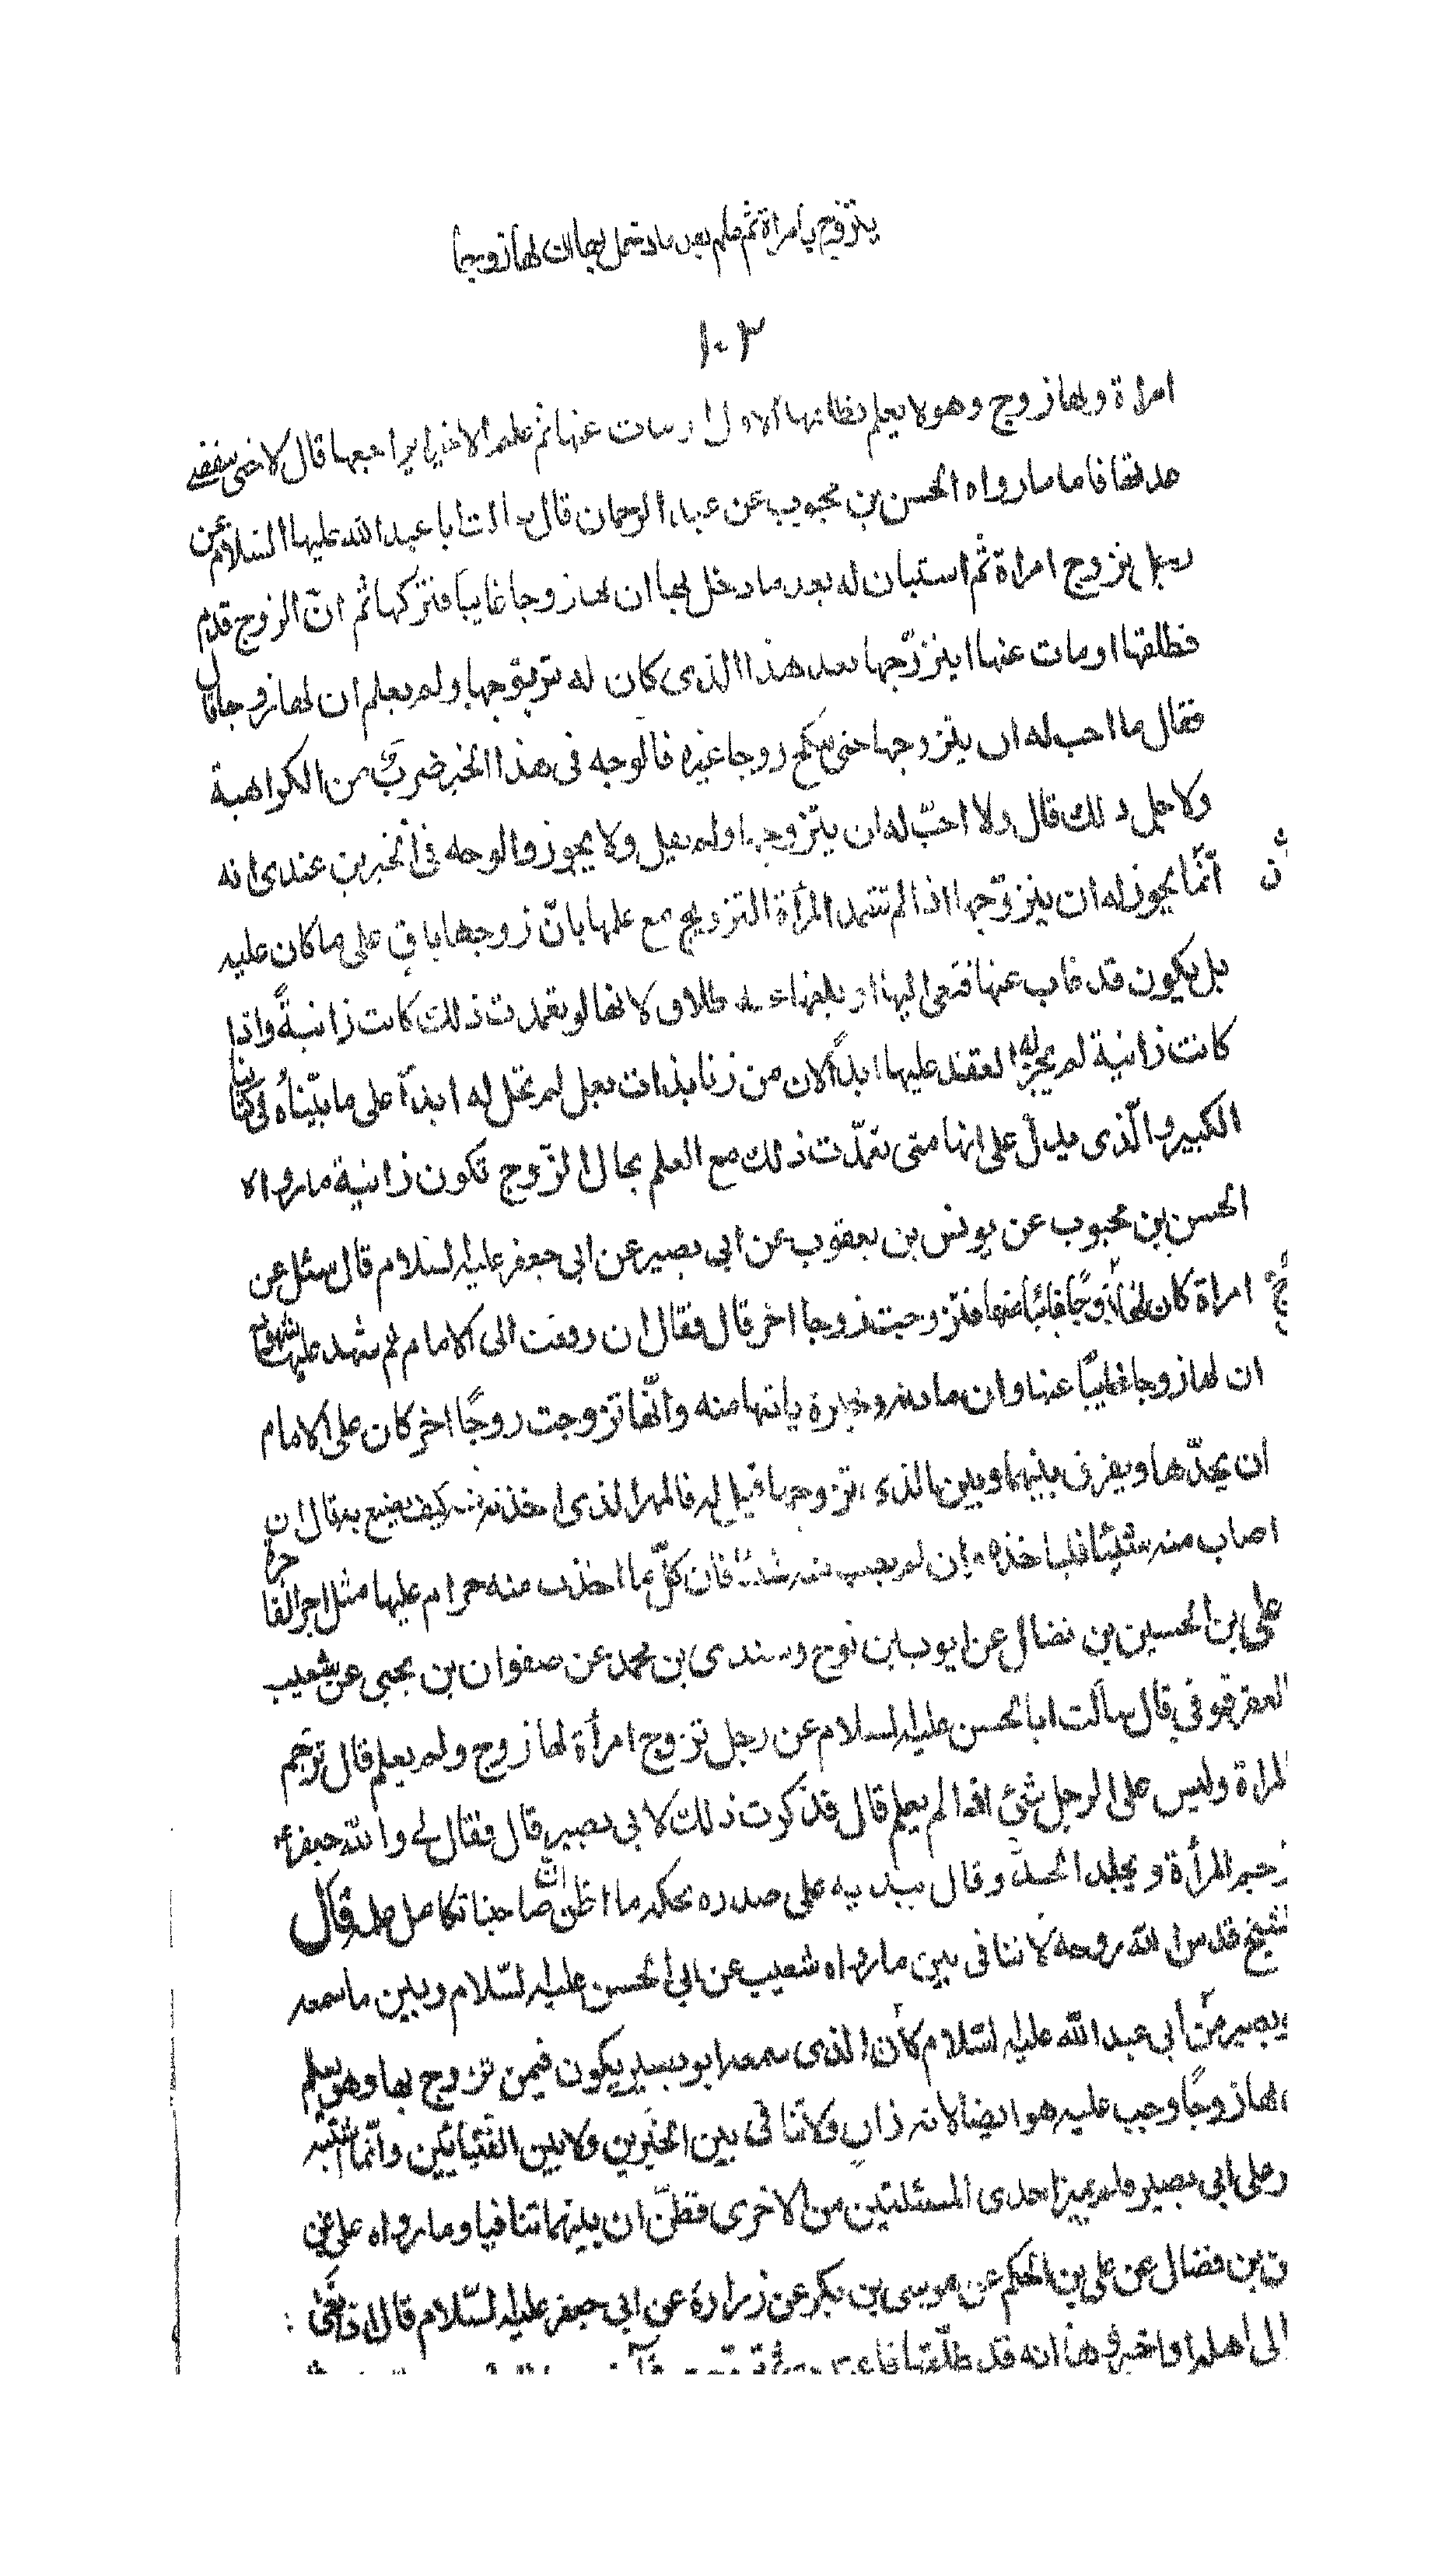 يتزوج بامراة ثم علم بعد ما دخل بها ان لها زوجا
١٠٢
امراة ولها زوج وهو لا يعلم فطلقها الاول او مات عنها ثم علم الاخير ايراجعها قال لا حتى تنقضي
عدتها فاما ما رواه الحسن بن محبوب عن عبد الرحمان قال سالت ابا عبد الله عليه السلام عن
رجل تزوج امراة ثم استبان له بعد ما دخل بها ان لها زوجا غايبا فتركها ثم ان الزوج قدم
فطلقها او مات عنها ايتزوجها بعد هذا الذى كان له تزوجها ولم يعلم ان لها زوجا قال
فقال ما احب له ان يتزوجها حتى تنكح زوجا غيره فالوجه فى هذا الخبر ضرب من الكراهية
ولاجل ذلك قال ولا احب له ان يتزوجها ولم يقل ولا يجوز والوجه فى الخبرين عندى انه
انما يجوز له ان يتزوجها اذا لم تتعمد المرأة التزويج مع علمها بان زوجها باق على ما كان عليه
بل يكون قد غاب عنها فنعى اليها او بلغها عنه طلاق لانها لو تعمدت ذلك كانت زانية واذا
كانت زانية لم يجز له العقد عليها ابدا لان من زنا بذات بعل لم تحل له ابدا على ما بيناه فى كتابنا
الكبير والذى يدل على انها متى تعمدت ذلك مع العلم بحال الزوج تكون زانية ما رواه
الحسن بن محبوب عن يونس بن يعقوب عن ابى بصير عن ابى جعفر عليه السلام قال سئل عن
امراة كان لها زوجا غائبا عنها فتزوجت زوجا اخر قال فقال ان رفعت الى الامام ثم شهد عليها شهود
ان لها زوجا غايبا عنها وان مادته وخبره ياتيها منه وانها تزوجت زوجا اخر كان على الامام
ان يحدها ويفرق بينها وبين الذى تزوجها قيل له فالمهر الذى اخذته منه كيف يصنع به قال ان
اصاب منه شيئا فلياخذه وان لم يصب منه شيئا فان كل ما اخذت منه حرام عليها مثل اجر الفاجرة
على بن الحسين بن فضال عن ايوب بن نوح وسندى بن محمد عن صفوان بن يحيى عن شعيب
العقرقوفى قال سألت ابا الحسن عليه السلام عن رجل تزوج امرأة لها زوج ولم يعلم قال ترجم
المراة وليس على الرجل شئ اذا لم يعلم قال فذكرت ذلك لابى بصير قال فقال لى والله جعفر ع
ترجم المرأة ويجلد الحد وقال بيديه على صدره يحكه ما اظن ان صاحبنا تكامل علمه قال
الشيخ قدس الله روحه لا تنافى بين ما رواه شعيب عن ابى الحسن عليه السلام وبين ما سمعه
ابو بصير من ابى عبد الله عليه السلام لان الذى سمعه ابو بصير يكون فيمن تزوج بها وهو يعلم
ان لها زوجا وجب عليه هو ايضا لانه زان ولا تنافى بين الخبرين ولا بين الفتيائين وانما اشتبه
الامر على ابى بصير ولم يميز احدى المسئلتين من الاخرى فظن ان بينهما تنافيا وما رواه على بن
الحسن بن فضال عن على بن الحكم عن موسى بن بكر عن زرارة عن ابى جعفر عليه السلام قال اذا نعى
الى اهله او اخبروها انه قد طلقها